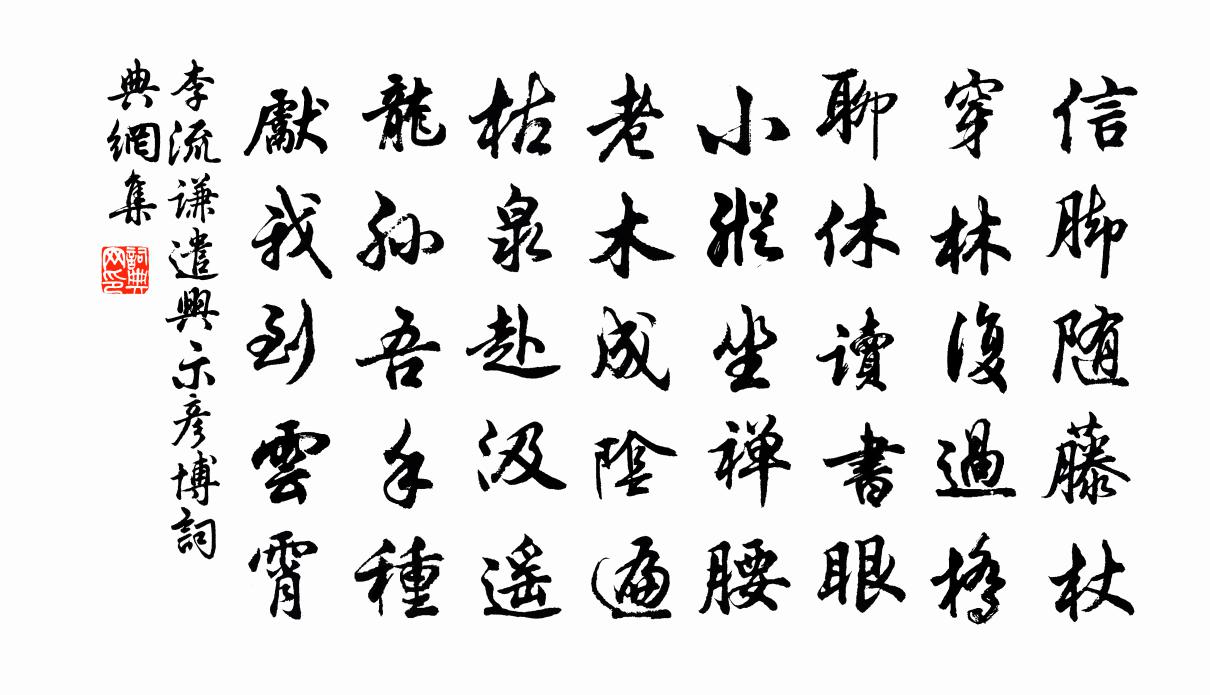 信脚随藤杖
穿林復過橋
聊休讀書眼
小縱坐禅腰
老木成陰遍
枯泉赴汲遥
龍孫吾手種
獻我到雲霄
李流谦遣興示彦博詞
典網集
詞典
网印